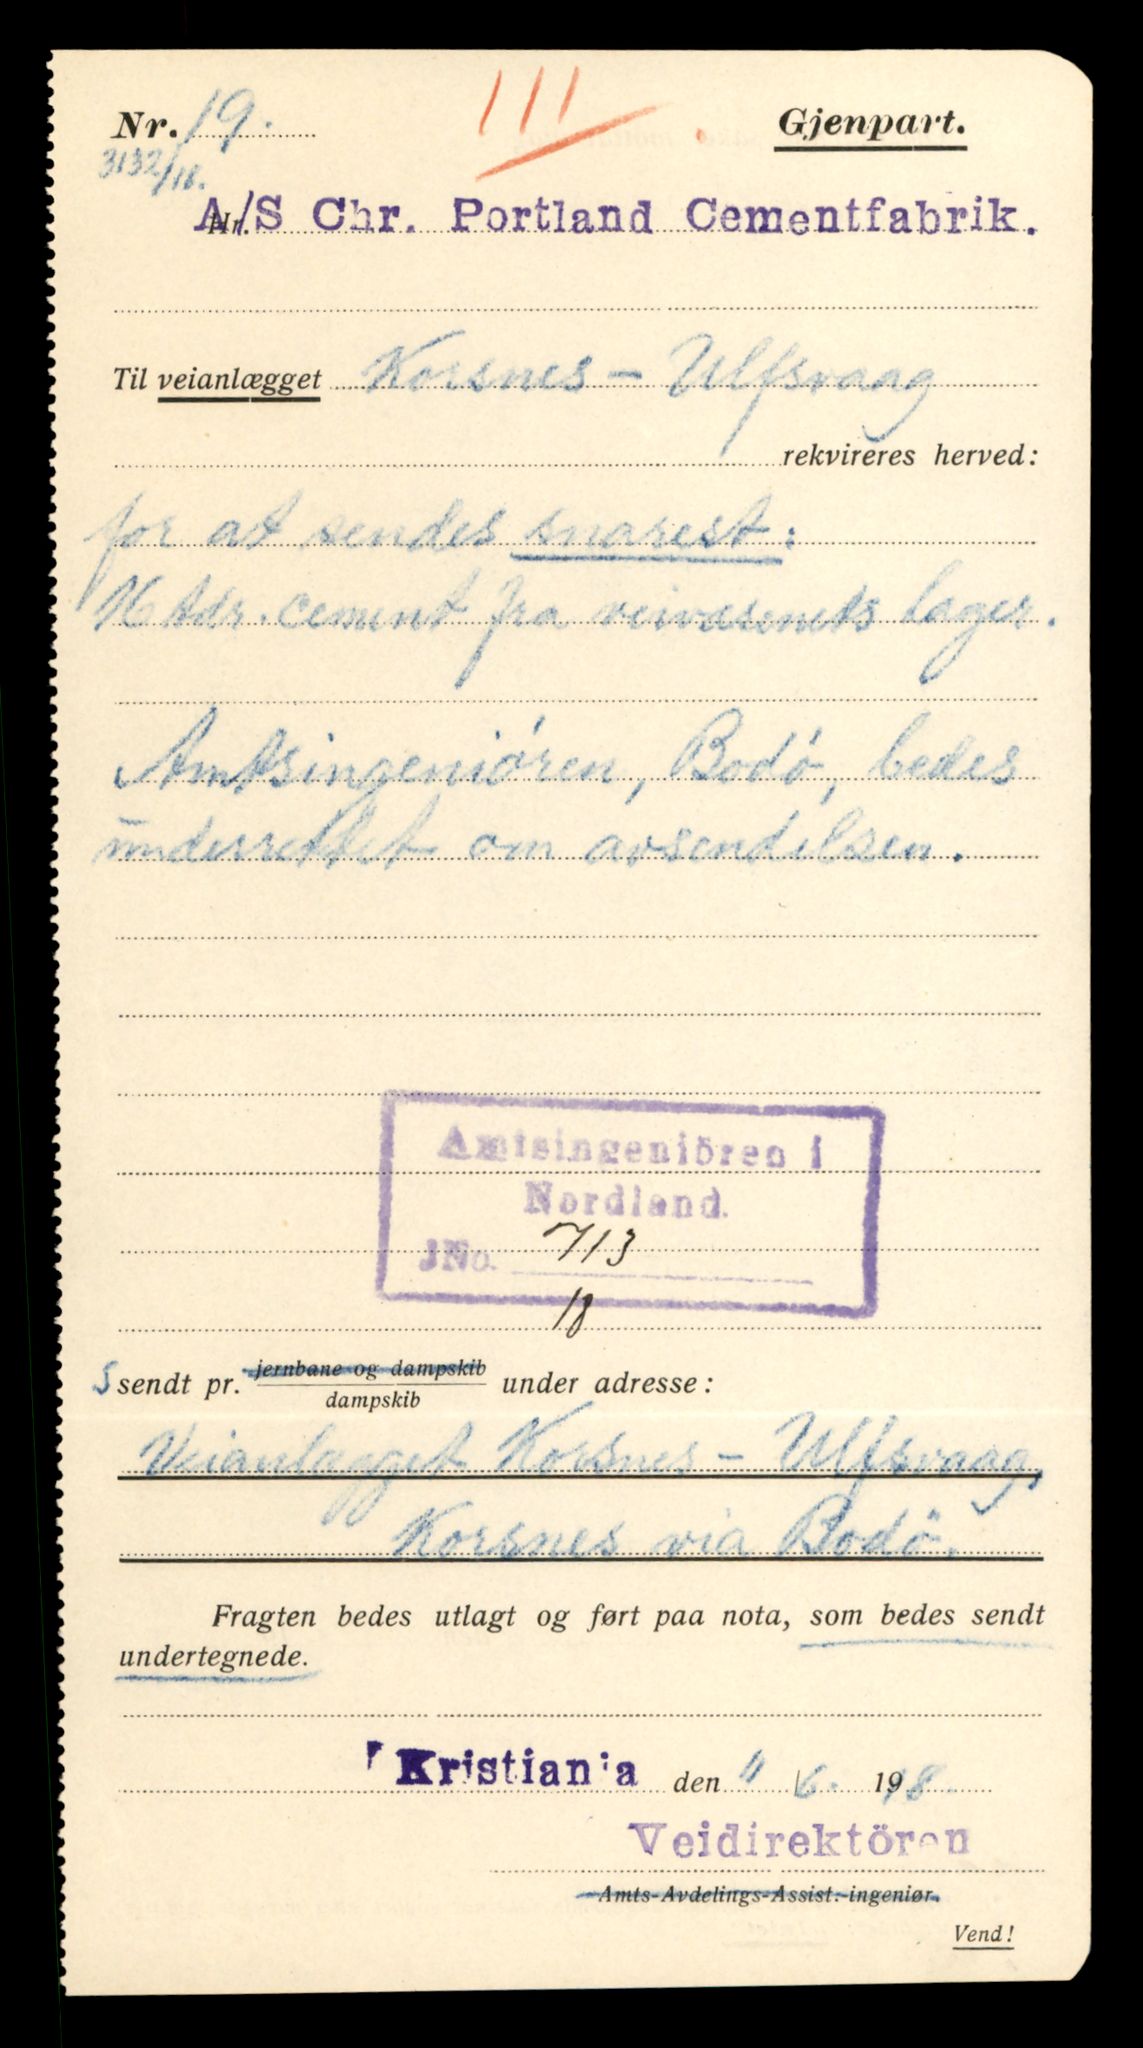 Nr. 19. 111 Gjenpart.
3132/18.
Nr. A/S Chr. Portland Cementfabrik.
Til veianlægget Korsnes - Ulfsvaag
rekvireres herved:
for at sendes snarest:
16 tdr. cement fra veivæsenets lager.
Amtsingeniören, Bodö, bedes
underrettet om avsendelsen.
Amtsingeniören i
Nordland.
JNo. 713
18
S sendt pr. jernbane og dampskib under adresse:
dampskib
Veianlægget Korsnes - Ulfsvaag,
Korsnes via Bodö.
Fragten bedes utlagt og ført paa nota, som bedes sendt
undertegnede.
Kristiania den 11/6. 1918.
Veidirektören
Amts-Avdelings-Assist.-ingeniør.
Vend!